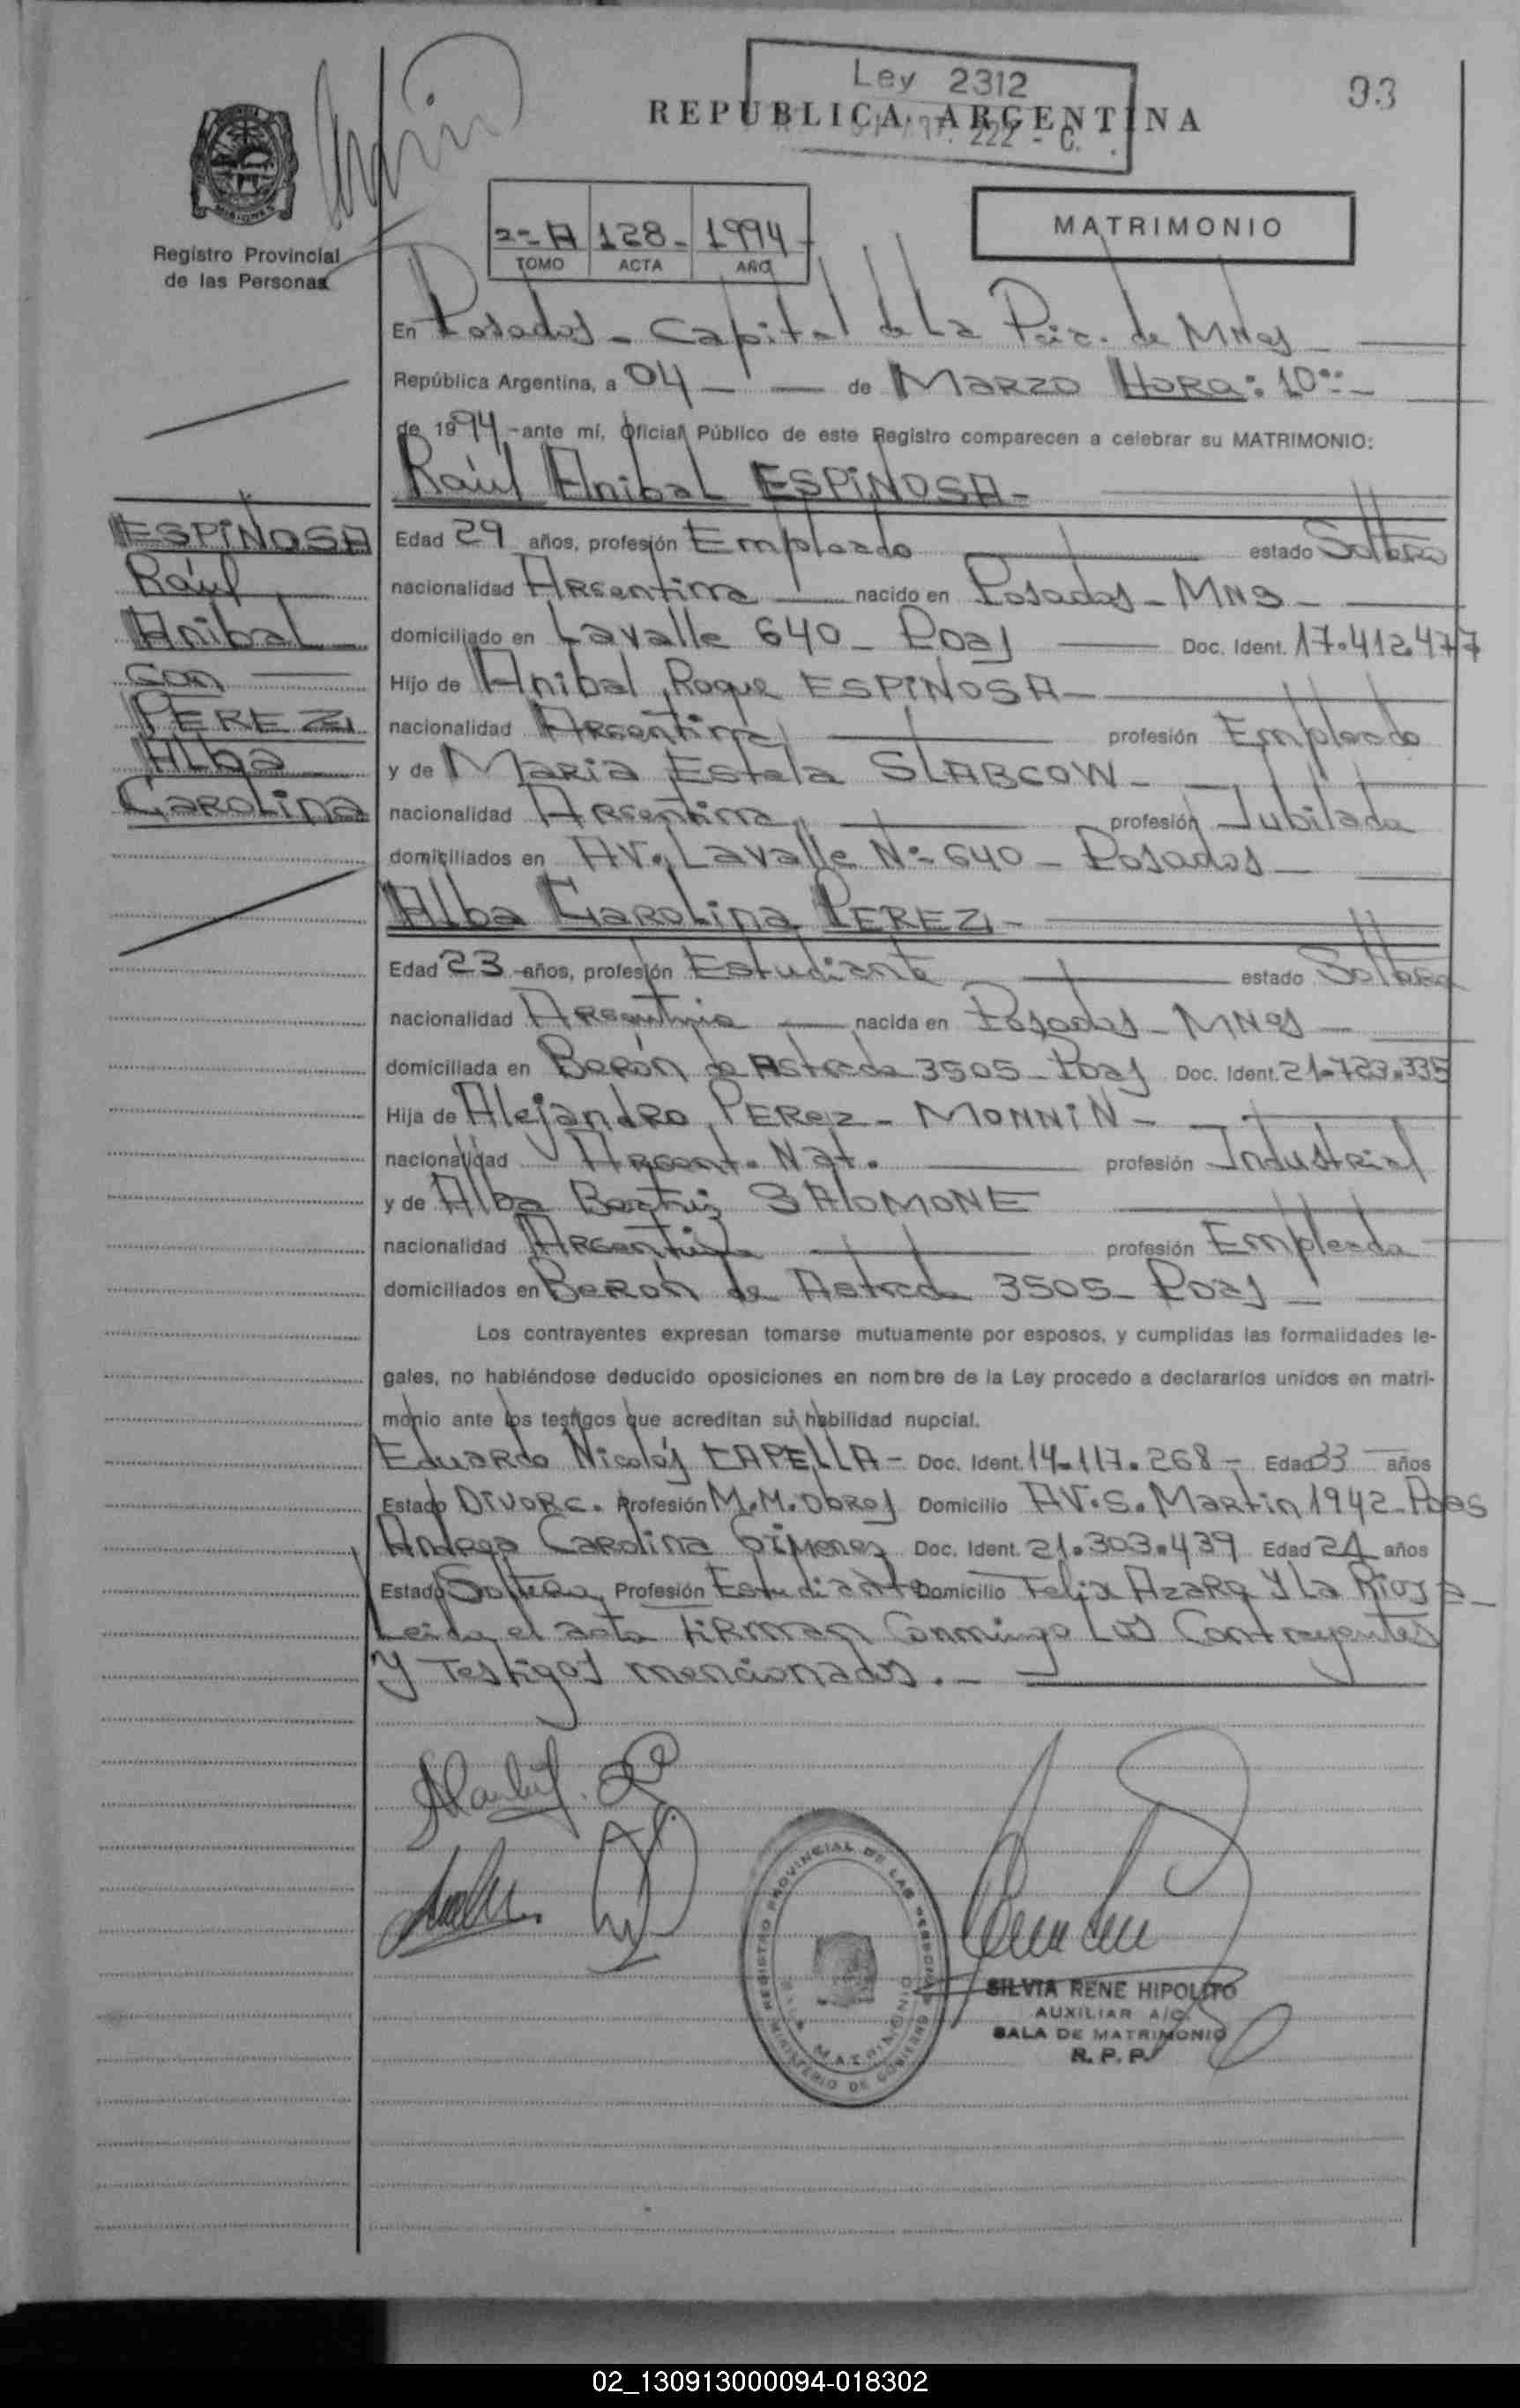 Ley 2312
93
REPUBLICA ARGENTINA
222 - C.
MISIONES
Registro Provincial
de las Personas
2=A 128- 1994-
TOMO ACTA AÑO
MATRIMONIO
En Posadas - Capital de la Pcia. de Mnes
República Argentina, a 04 — — de Marzo Hora: 10
de 1994 -ante mí, Oficial Público de este Registro comparecen a celebrar su MATRIMONIO:
Raúl Anibal ESPINOSA-
ESPINOSA
Raúl
Anibal
con
PEREZ
Alba
Carolina
Edad 29 años, profesión Empleado estado Soltero
nacionalidad Argentina nacido en Posadas - Mns -
domiciliado en Lavalle 640 - Pdas Doc. Ident. 17.412.477
Hijo de Anibal Roque ESPINOSA-
nacionalidad Argentina profesión Empleado
y de Maria Estela SLABCOW-
nacionalidad Argentina profesión Jubilada
domiciliados en AV. Lavalle Nº 640 - Posadas
Alba Carolina PEREZ-
Edad 23 -años, profesión Estudiante estado Soltera
nacionalidad Argentina nacida en Posadas - Mnes
domiciliada en Berón de Astrada 3505 - Pdas Doc. Ident. 21.723.335
Hija de Alejandro PEREZ - MONNIN -
nacionalidad Argent. Nat. profesión Industrial
y de Alba Beatriz SALOMONE
nacionalidad Argentina profesión Empleada
domiciliados en Berón de Astrada 3505 - Pdas
Los contrayentes expresan tomarse mutuamente por esposos, y cumplidas las formalidades le-
gales, no habiéndose deducido oposiciones en nombre de la Ley procedo a declararlos unidos en matri-
monio ante los testigos que acreditan su habilidad nupcial.
Eduardo Nicolás CAPELLA - Doc. Ident. 14.117.268 - Edad 33 años
Estado Divorc. Profesión M.M.Obras Domicilio AV. S. Martin 1942 - Pdas
Andrea Carolina Gimenez Doc. Ident. 21.303.439 Edad 24 años
Estado Soltera Profesión Estudiante Domicilio Felix Azara y La Rioja -
Leida el acta firman Conmigo Los Contrayentes
y Testigos mencionados. -
REGISTRO PROVINCIAL DE LAS PERSONAS
MINISTERIO DE GOBIERNO
SALA MATRIMONIO
SILVIA RENE HIPOLITO
AUXILIAR A/C.
SALA DE MATRIMONIO
R. P. P.
02_130913000094-018302